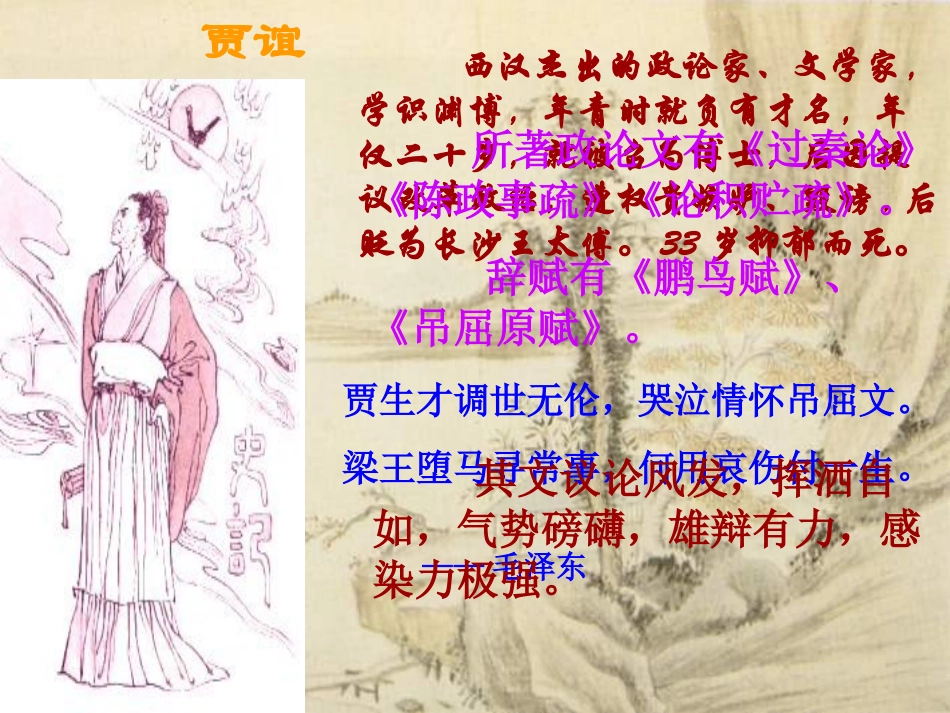 贾谊
西汉杰出的政论家、文学家，
学识渊博，年青时就负有才名，年
仅二十岁，就被召为博士，后因提
议
遭权贵
后
贬为长沙王太傅。33 岁抑郁而死。
所著政论文有《过秦论》
《陈政事疏》《论积贮疏》。
辞赋有《鹏鸟赋》、
《吊屈原赋》。
贾生才调世无伦，哭泣情怀吊屈文。
梁王堕马寻常事，何用哀伤付一生。
——毛泽东
其文议论风发，挥洒自
如，气势磅礴，雄辩有力，感
染力极强。
史记